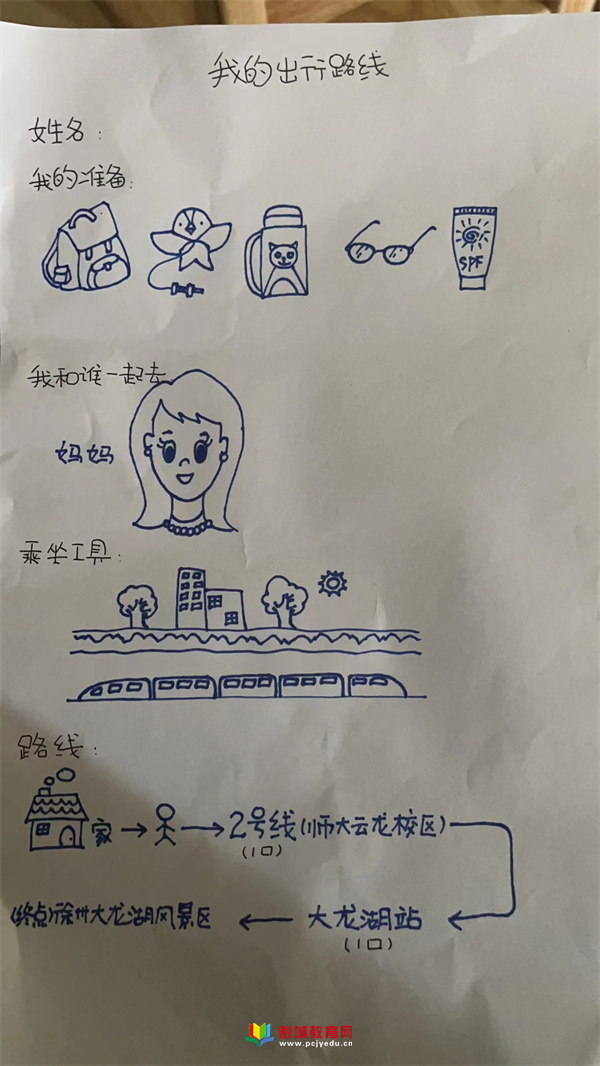 我的出行路线
姓名：
我的准备：
SPF
我和谁一起去
妈妈
乘坐工具：
路线：
家 2号线(师大云龙校区)
(1口)
(终点)徐州大龙湖风景区 大龙湖站
(1口)
彭城教育网
www.pcjyedu.cn